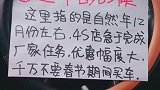 这里指的是自然年12
月份左右，4S店急于完成
厂家任务，优惠幅度大，
千万不要春节期间买车。